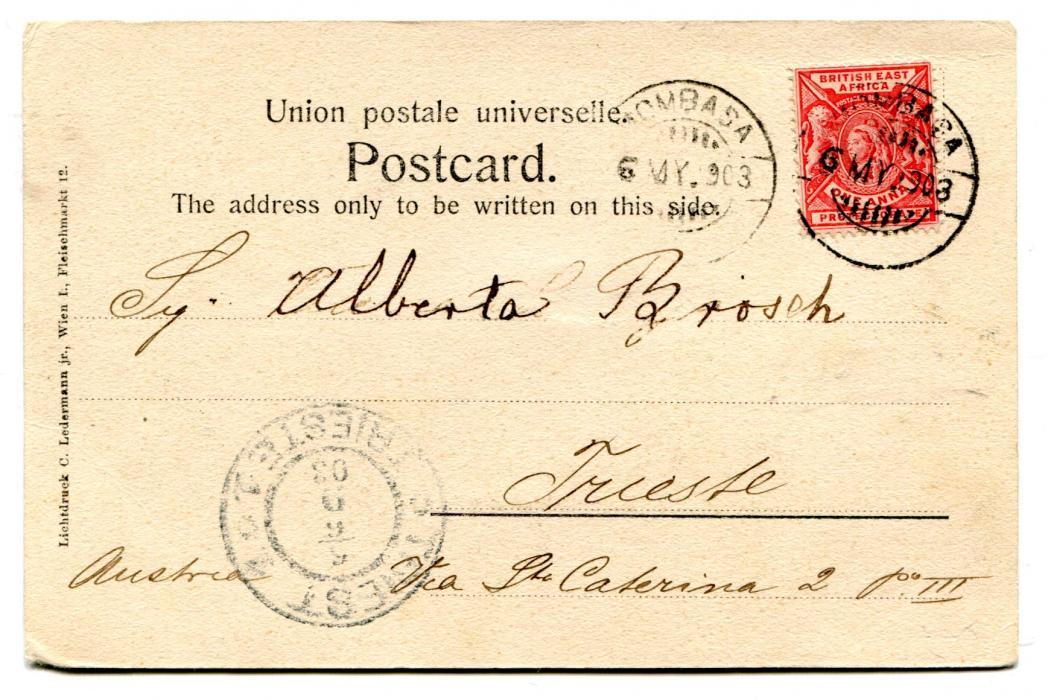 Union postale universelle.
Postcard.
The address only to be written on this side.
MOMBASA
6 MY. 903
BRITISH EAST
AFRICA
ONE ANNA
MOMBASA
6 MY. 903
Sy. Alberta Brosch
Trieste
Austria Via Sta Caterina 2 po III
TRIESTE
TRIEST
Lichtdruck C. Ledermann jr., Wien I., Fleischmarkt 12.